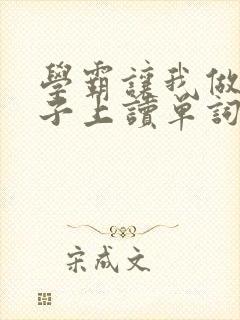 學霸讓我做
子上讀單詞
宋成文